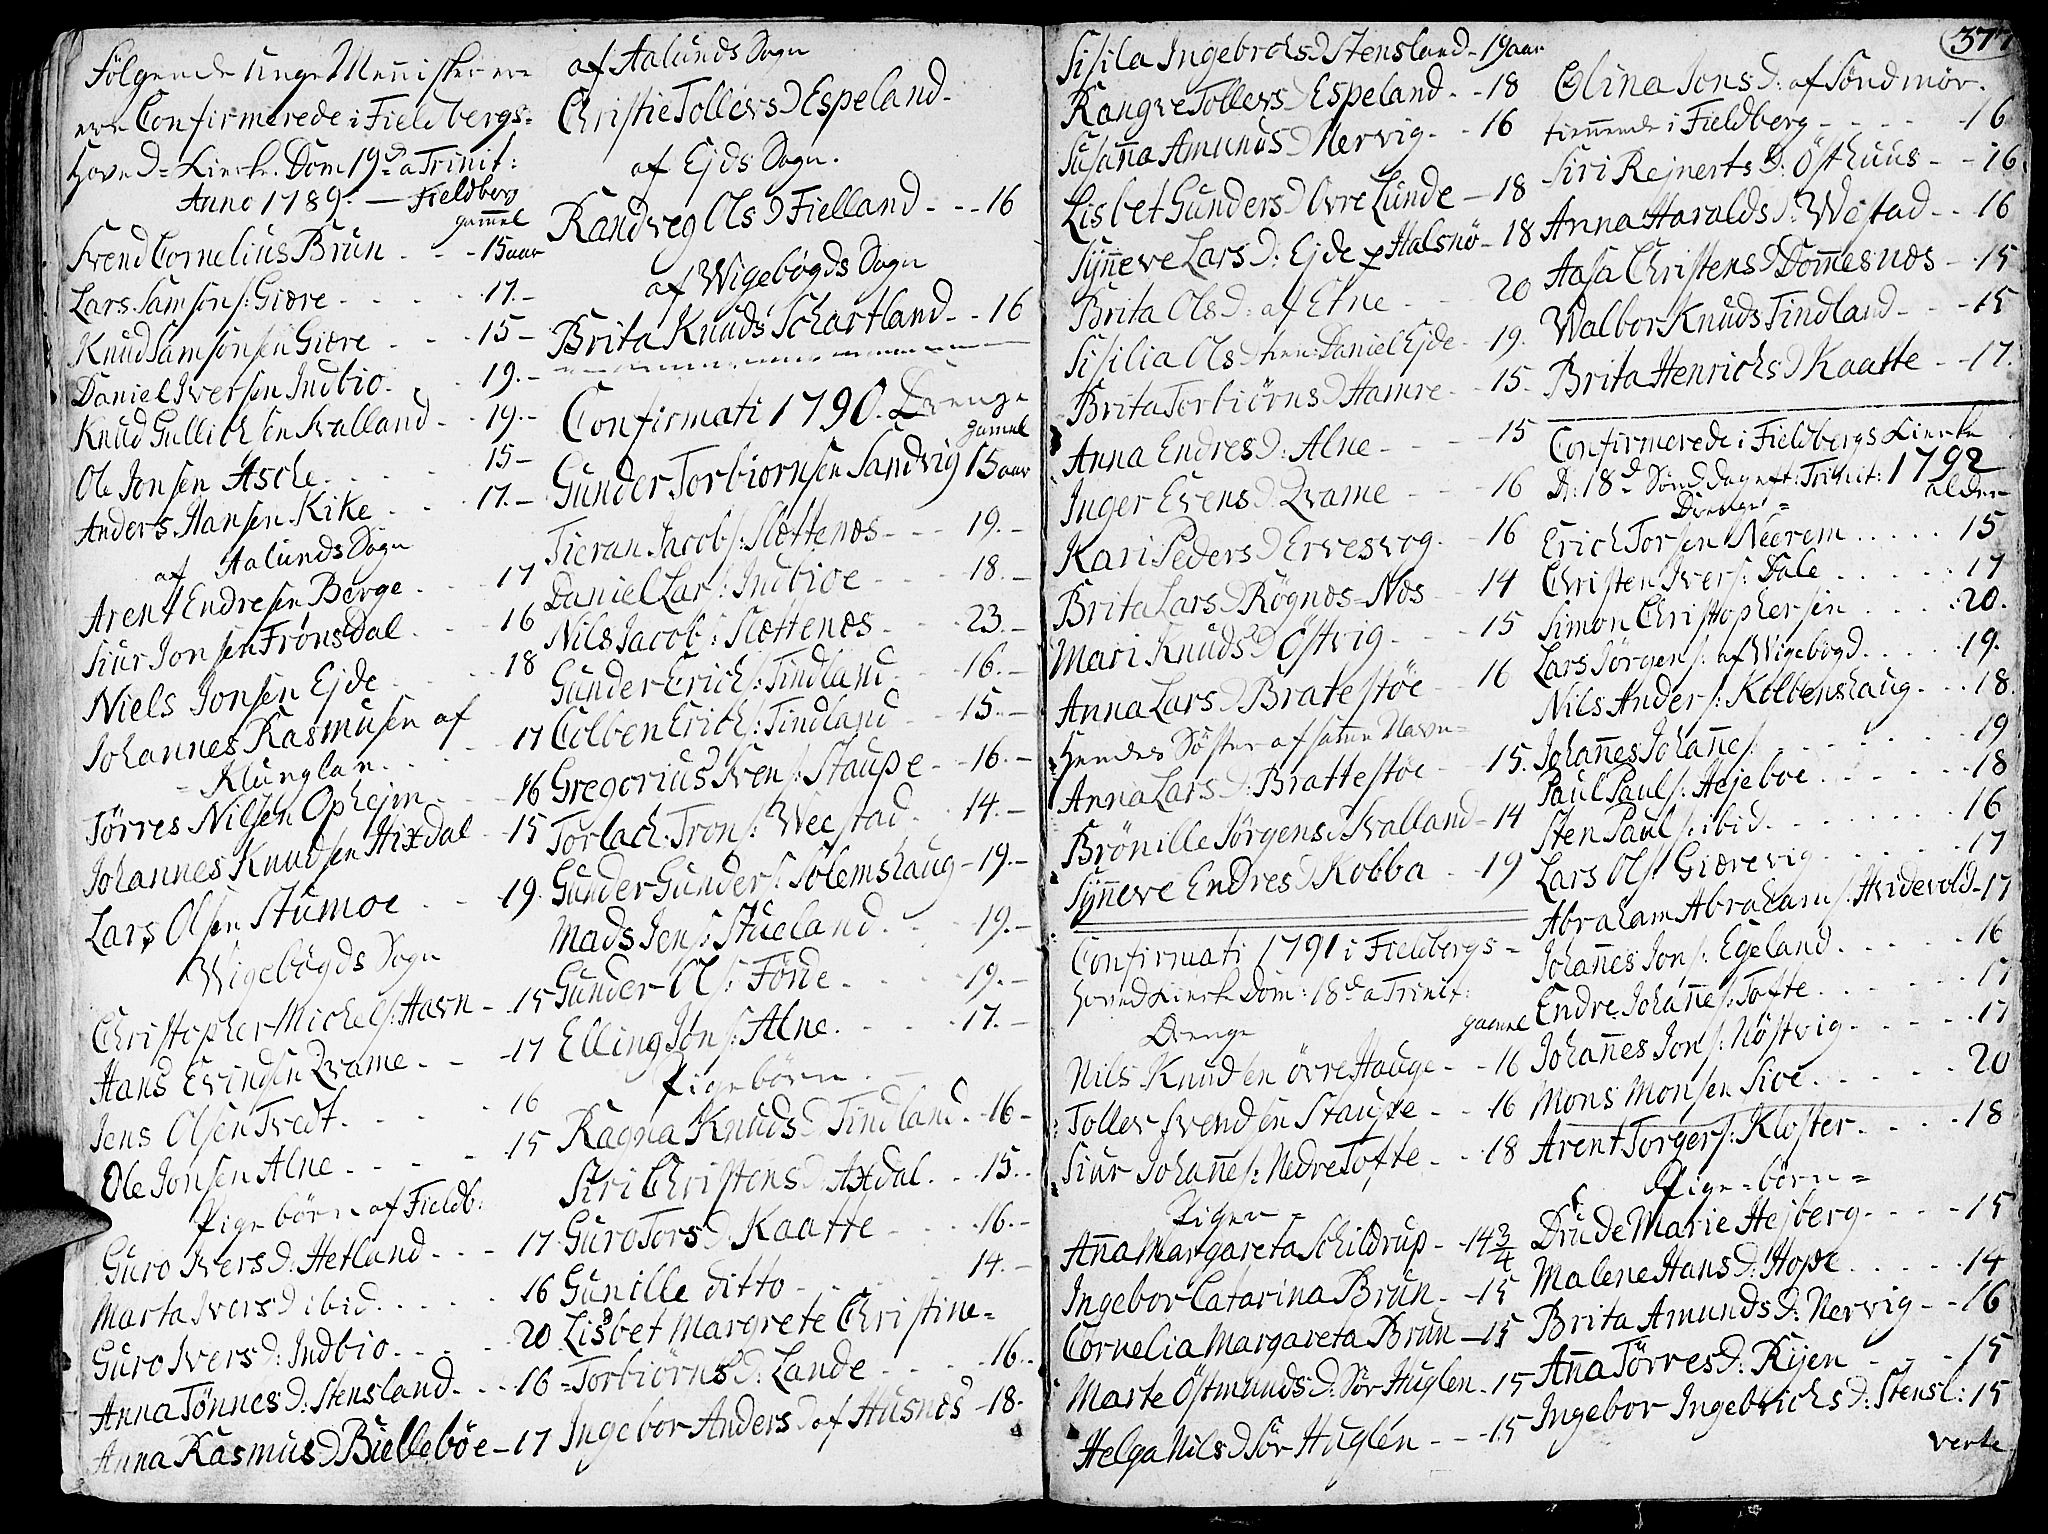 Følgende unge Mennisker ere
ere Confirmerede i Fieldbergs=
Hoved=Kirke Dom 19d a Trinit:
Anno 1789. — Fieldberg
gam̅el
Svend Cornelius Brun - - 15 aar
Lars Samsons: Giære - - - 17.-
Knud Samsonsen Giære - - 15 -
Daniel Iversen Indbio. - - 19.-
Knud Gullichsen Svalland - 19.-
Ole Jonsen Asche. - - - 15 -
Anders Hansen Kike - - 17.-
af Aalunds Sogn
Arent Endresen Berge - - 17
Siur Jonsen Frønsdal - - 16
Niels Jonsen Ejde - - - 18
Johannes Rasmusen af
= Klunglan. - - - 17
Tørres Nilsen Ophejm - - 16
Johannes Knudsen Hixdal - 15
Lars Olsen Stumoe - - - 19.
Wigebøgds Sogn
Christopher Michels: Havn - 15
Hans Evindsen Qvame - - 17
Jens Olsen Tvedt. - - - 16
Ole Jonsen Alne - - - - 15
Pigebørn af Fieldb:
Guro Ivers D: Hetland - - - 17
Marta Ivers D ibid. - - - - 16
Guro Ivers D: Indbio. - - - 20
Anna Tønnes D: Stensland. - - 16
Anna Rasmus D Biellebøe - 17
af Aalunds Sogn
Christie Tollevs D Espeland.
af Ejds Sogn.
Randveg Ols D Fielland - - - 16
af Wigebøgds Sogn
Brita Knuds Schartland. - - 16
Confirmati 1790. Drenge
gamel
Gunder Torbiornsen Sandvig 15 aar
Tieran Jacobs: Slættenæs - - - 19.-
Daniel Lars: Indbioe - - - 18.-
Nils Jacobs: Slættenæs. - - - 23.-
Gunder Erichs: Tindland - - 16.-
Colben Erichs: Tindland - - 15.-
Gregorius Svens: Staupe - - 16.-
Torlach Trons: Weestad - - 14.-
Gunder Gunders: Solemshaug - 19.-
Mads Jens: Stueland. - - 19.-
Gunder Ols: Fønde. - - - 19.-
Elling Jons: Alne. - - - 17.-
Pigebørn. -
Ragna Knuds D Tindland. - 16 -
Siri Christens D Axdal. - - 15.-
Guro Tors D. Kaatte - - - 16.-
Gunille ditto - - - - 14.-
Lisbet Margrete Christine=
=Torbiørns D. Lande - - - 16..
Ingebor Anders D af Husnæs - 18.
377
Sisila Ingebrets D Stensland - 19 aar
Rangve Tollevs D Espeland - - 18
Susan̅a Amunds D Nervig. - - 16
Lisbet Gunders D Øvre Lunde - 18
Syn̅eve Lars D: Ejde p Halsnø - 18
Brita Ols D: af Etne - - - 20
Sisilia Ols D tien: Daniel Ejde - 19.
Brita Torbiørns D Hamre - - 15.
Anna Endres D: Alne - - - 15
Inger Evens D. Qvame - - - 16
Kari Peders D Ervesvog. - - 16
Brita Lars D. Røgnæs=Næs - - 14
Mari Knuds D Østvig - - - 15
Anna Lars D Bratestøe - - 16
Hendes Søster af samme Navn=
Anna Lars D: Brattestøe - - 15.
Brønille Jørgens D Svalland - 14
Syn̅eve Endres D Kobba - - 19
Confirmati 1791 i Fieldbergs=
Hoved Kirke Dom: 18d a Trinit:
Drenge gam̅el
Nils Knudsen øvre Hauge - - 16
Tollev Svendsen Staupe - - 16
Siur Johan̅es: Nedre Tofte - - 18
Piger =
An̅a Margareta Schildrup - 14 3/4
Ingebor Catarina Brun - - 15
Cornelia Margareta Brun - 15
Marte Østmunds D. Sør Huglen - 15
Helga Nils D Sør Huglen - - - 15
Olina Jons D: af Søndmør.
tien̅ende i Fieldberg - - - - 16
Siri Rejnerts D: Østhuus - - 16.
Anna Haralds D: Westad - - 16
Aasa Christens D Dom̅esnæs - 15
Walbor Knuds Tindland - - - 15
Brita Henrichs D Kaatte - - 17.
Confirmerede i Fieldbergs Kirke
D: 18d Søndag eft: Trinit: 1792
Drenge = alder
Erich Torsen Neerem . . . . . 15
Christen Ivers: Dale . . . . . . 17
Simon Christophersen . . . . 20.
Lars Jørgens: af Wigebøgd. . . . . . 19.
Nils Anders: Kolbenshaug. . . . 18.
Johan̅es Johan̅es: - - - - - - 19
Paul Pauls: Hejeboe . . . . . . 18
Sten Pauls: ibid. . . . . . . . . 16
Lars Ols: Giærevig - - - - - 17
Abraham Abrahams: Hvidevold - 17
Johan̅es Jons: Egeland. . . . . . 16
Endre Johan̅es: Tofte . . . . . . 17
Johan̅es Jons: Nøstvig - - - - 17
Mons Monsen Sioe. . . . . . . 20
Arent Torgers: Kloster. . . . . 18
Pige=børn=
Drude Marie Hejberg. - - - - 15
Malene Hans D: Hope. . . . . . 14
Brita Amunds D: Nervig - - 16
An̅a Tørres D: Rijen - - - - 15
Ingebor Ingebrichs D: Stensl: 15
verte